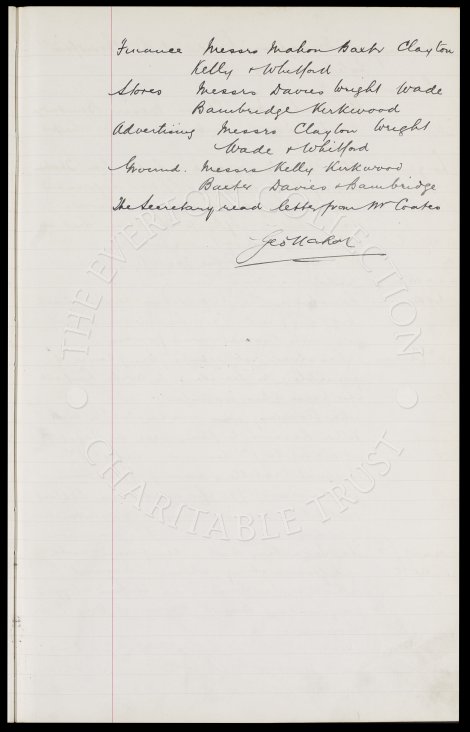 Finance Messrs Mahon Baxter Clayton
Kelly & Whitford
Stores Messrs Davies Wright Wade
Bainbridge Kirkwood
Advertising Messrs Clayton Wright
Wade & Whitford
Ground. Messrs Kelly Kirkwood
Baxter Davies & Bainbridge
The Secretary read letter from Mr Coates
Geo Mahon
THE EVERTON COLLECTION
CHARITABLE TRUST